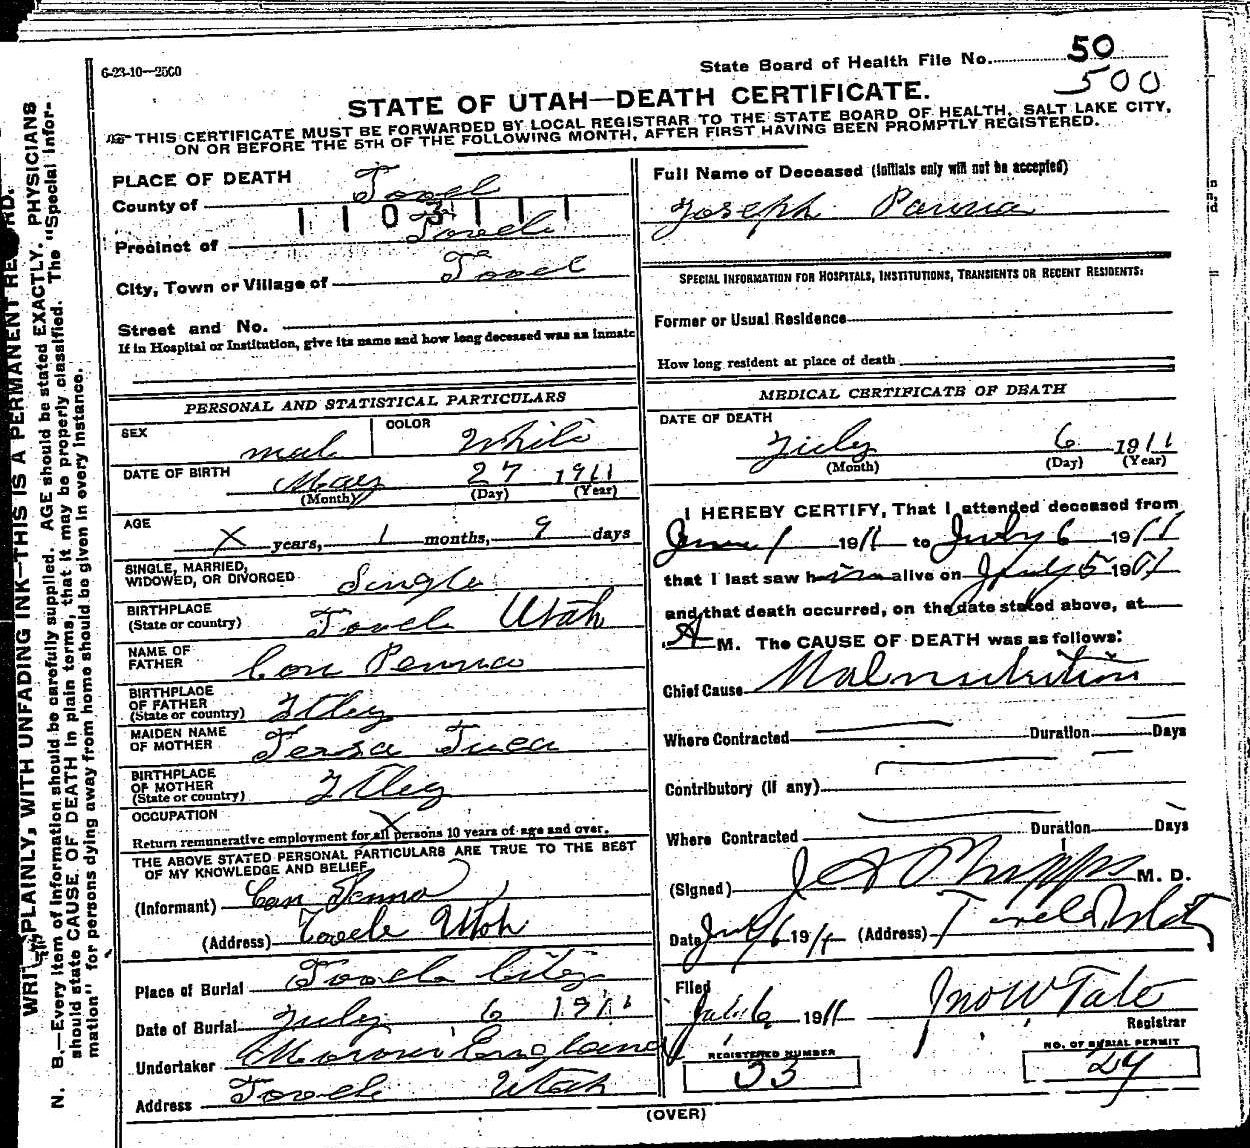 6-23-10—2500
State Board of Health File No. 50
500
STATE OF UTAH—DEATH CERTIFICATE.
THIS CERTIFICATE MUST BE FORWARDED BY LOCAL REGISTRAR TO THE STATE BOARD OF HEALTH, SALT LAKE CITY,
ON OR BEFORE THE 5TH OF THE FOLLOWING MONTH, AFTER FIRST HAVING BEEN PROMPTLY REGISTERED.
PLACE OF DEATH
County of Tooel
1 1 0 3 1 1 1
Precinct of Tooele
City, Town or Village of Tooel
Street and No.
If in Hospital or Institution, give its name and how long deceased was an inmate
PERSONAL AND STATISTICAL PARTICULARS
SEX male COLOR White
DATE OF BIRTH May 27 1911
(Month) (Day) (Year)
AGE X years, 1 months, 9 days
SINGLE, MARRIED,
WIDOWED, OR DIVORCED Single
BIRTHPLACE
(State or country) Tooele Utah
NAME OF
FATHER Con Penna
BIRTHPLACE
OF FATHER
(State or country) Itley
MAIDEN NAME
OF MOTHER Tersa
BIRTHPLACE
OF MOTHER
(State or country) Itley
OCCUPATION X
Return remunerative employment for all persons 10 years of age and over.
THE ABOVE STATED PERSONAL PARTICULARS ARE TRUE TO THE BEST
OF MY KNOWLEDGE AND BELIEF
(Informant) Con Penna
(Address) Tooele Utah
Place of Burial Tooele City
Date of Burial July 6 1911
Undertaker England
Address Tooele Utah
Full Name of Deceased (Initials only will not be accepted)
Joseph Panna
SPECIAL INFORMATION FOR HOSPITALS, INSTITUTIONS, TRANSIENTS OR RECENT RESIDENTS:
Former or Usual Residence
How long resident at place of death
MEDICAL CERTIFICATE OF DEATH
DATE OF DEATH
July 6 1911
(Month) (Day) (Year)
I HEREBY CERTIFY, That I attended deceased from
June 1 1911 to July 6 1911
that I last saw him alive on July 5 1901
and that death occurred, on the date stated above, at
A M. The CAUSE OF DEATH was as follows:
Chief Cause Malnutrition
Where Contracted Duration Days
Contributory (if any)
Where Contracted Duration Days
(Signed) J A Phipps M. D.
Date July 6 1911 (Address) Tooele Utah
Filed
1911 Jno W Tate
Registrar
REGISTERED NUMBER
33
NO. OF BURIAL PERMIT
24
(OVER)
PLAINLY, WITH UNFADING INK—THIS IS A PERMANENT
N. B.—Every item of Information should be carefully supplied. AGE should be stated EXACTLY. PHYSICIANS
should state CAUSE OF DEATH in plain terms, that it may be properly classified. The "Special Infor-
mation" for persons dying away from home should be given in every instance.